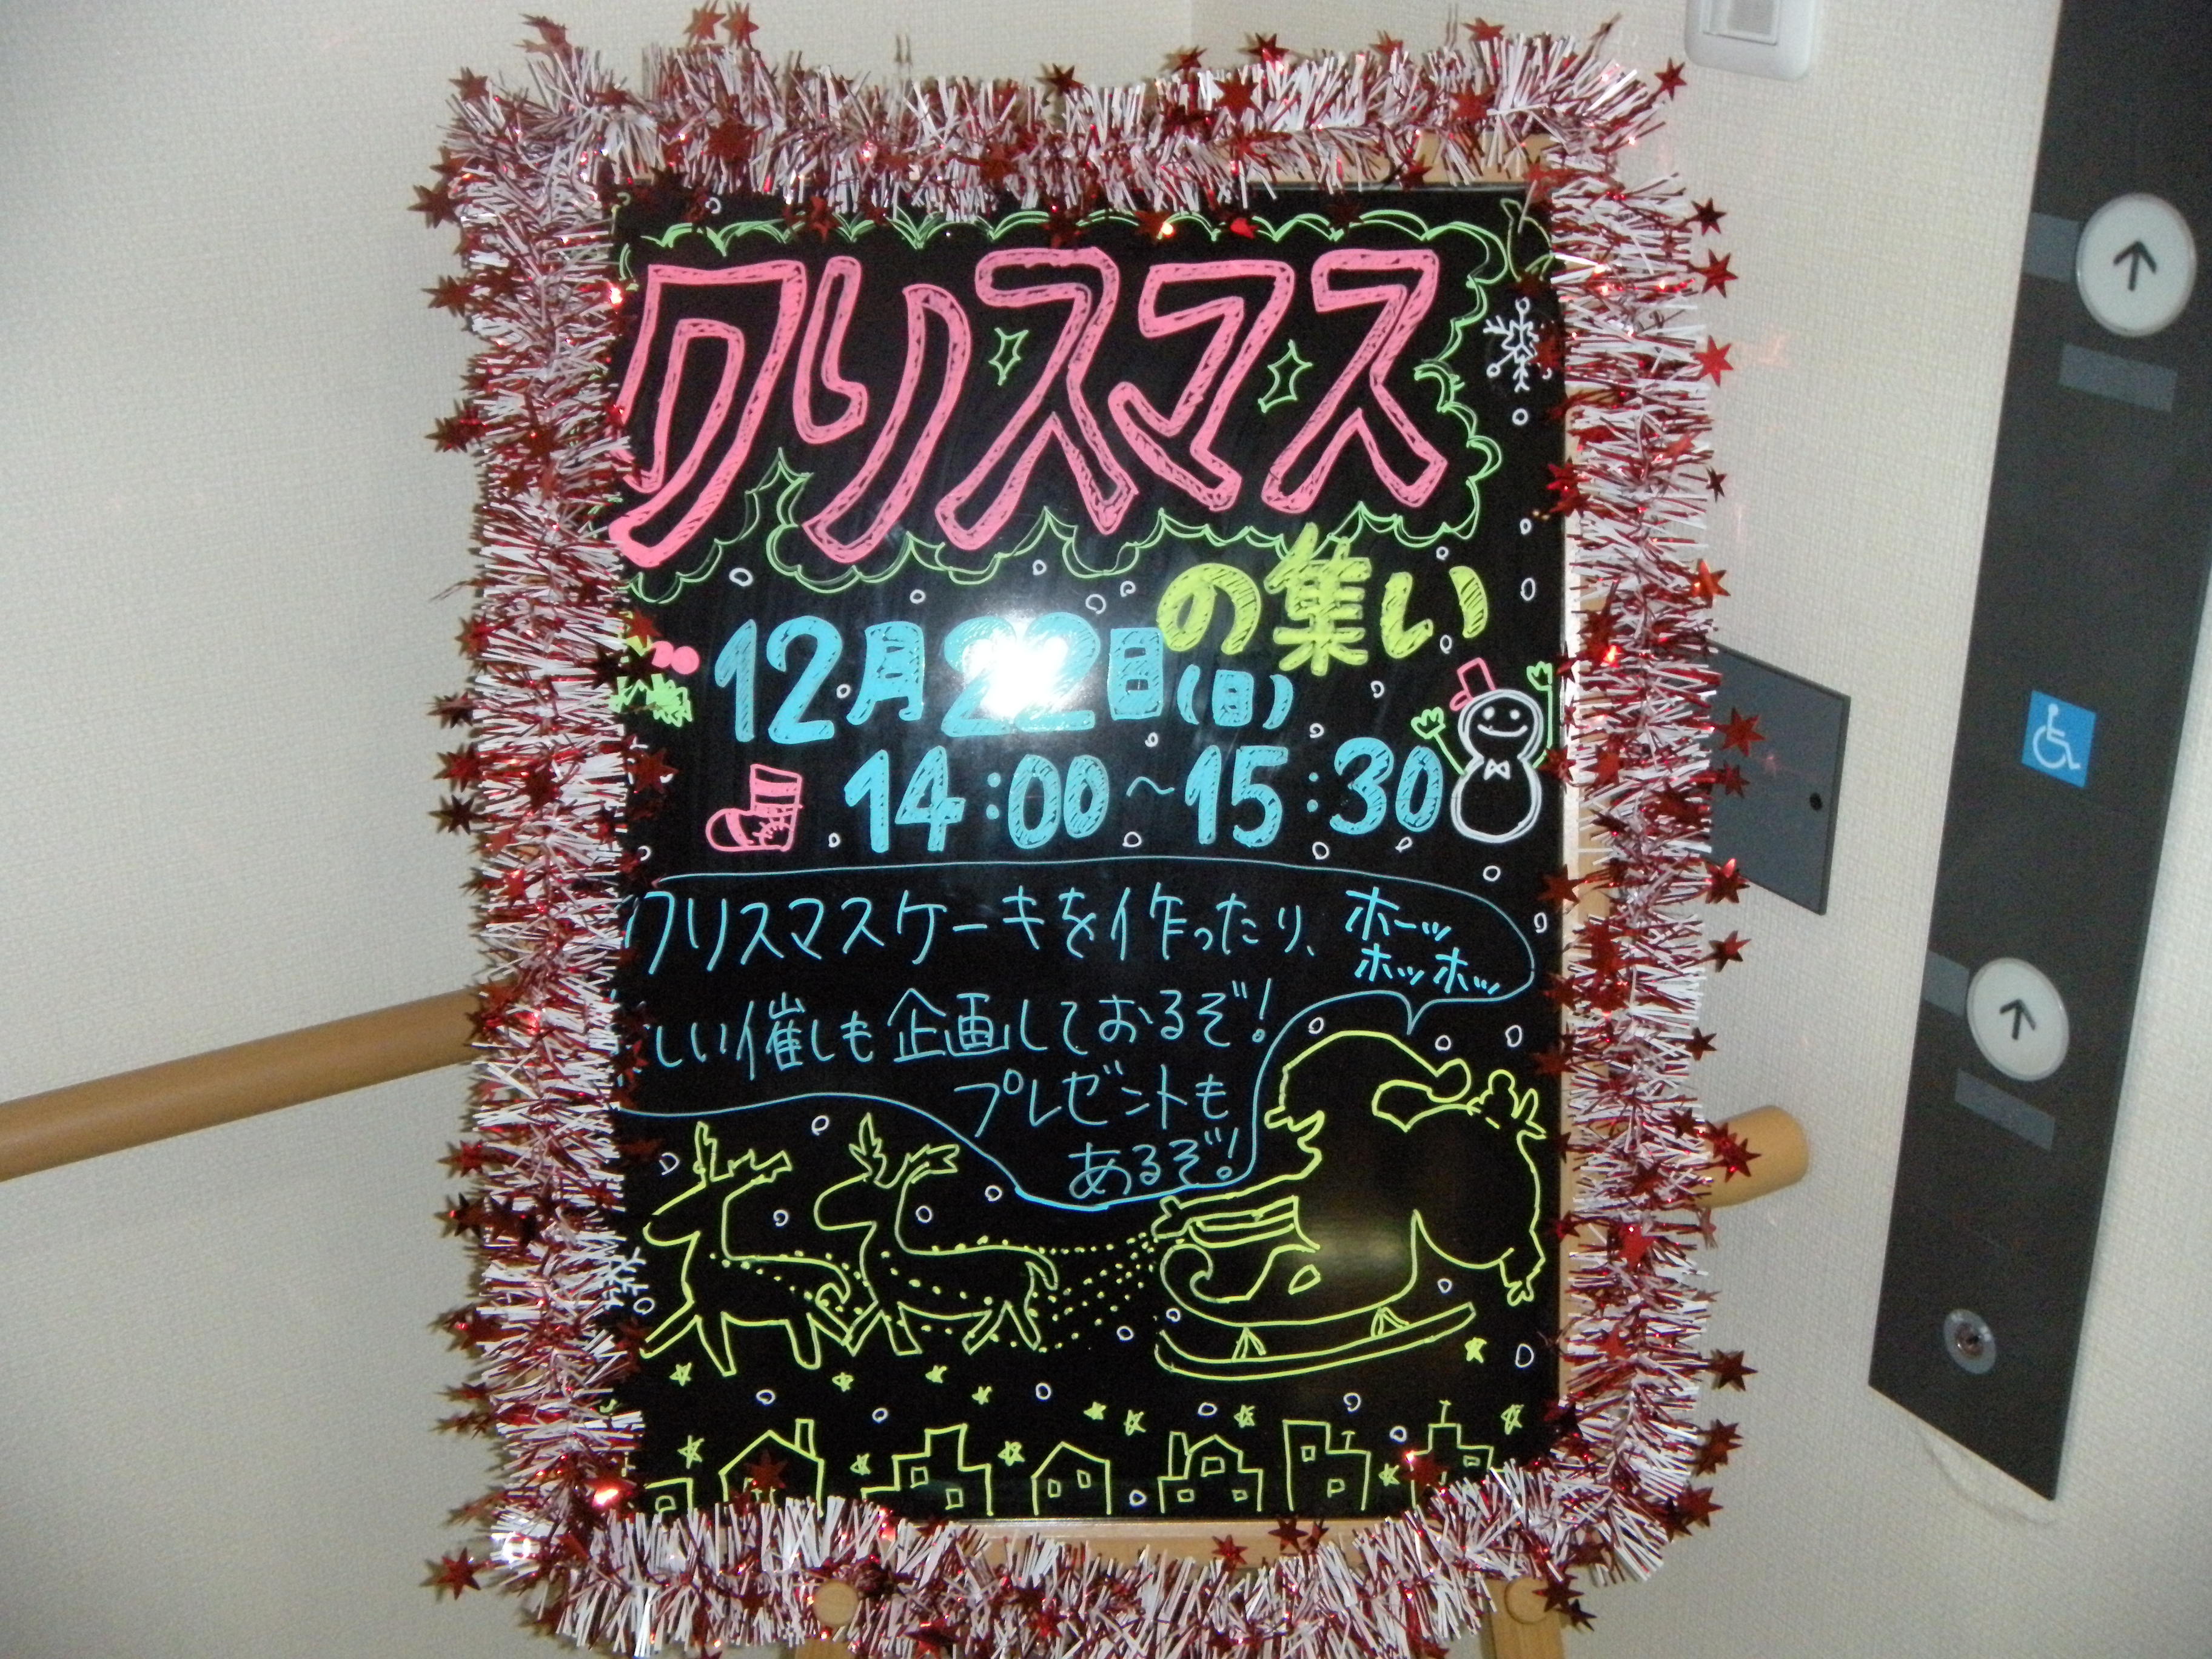 クリスマス
の集い
12月22日(日)
14:00~15:30
クリスマスケーキを作ったり、
しい催しも企画しておるぞ!
プレゼントも
あるぞ!
ホーッ
ホッホッ